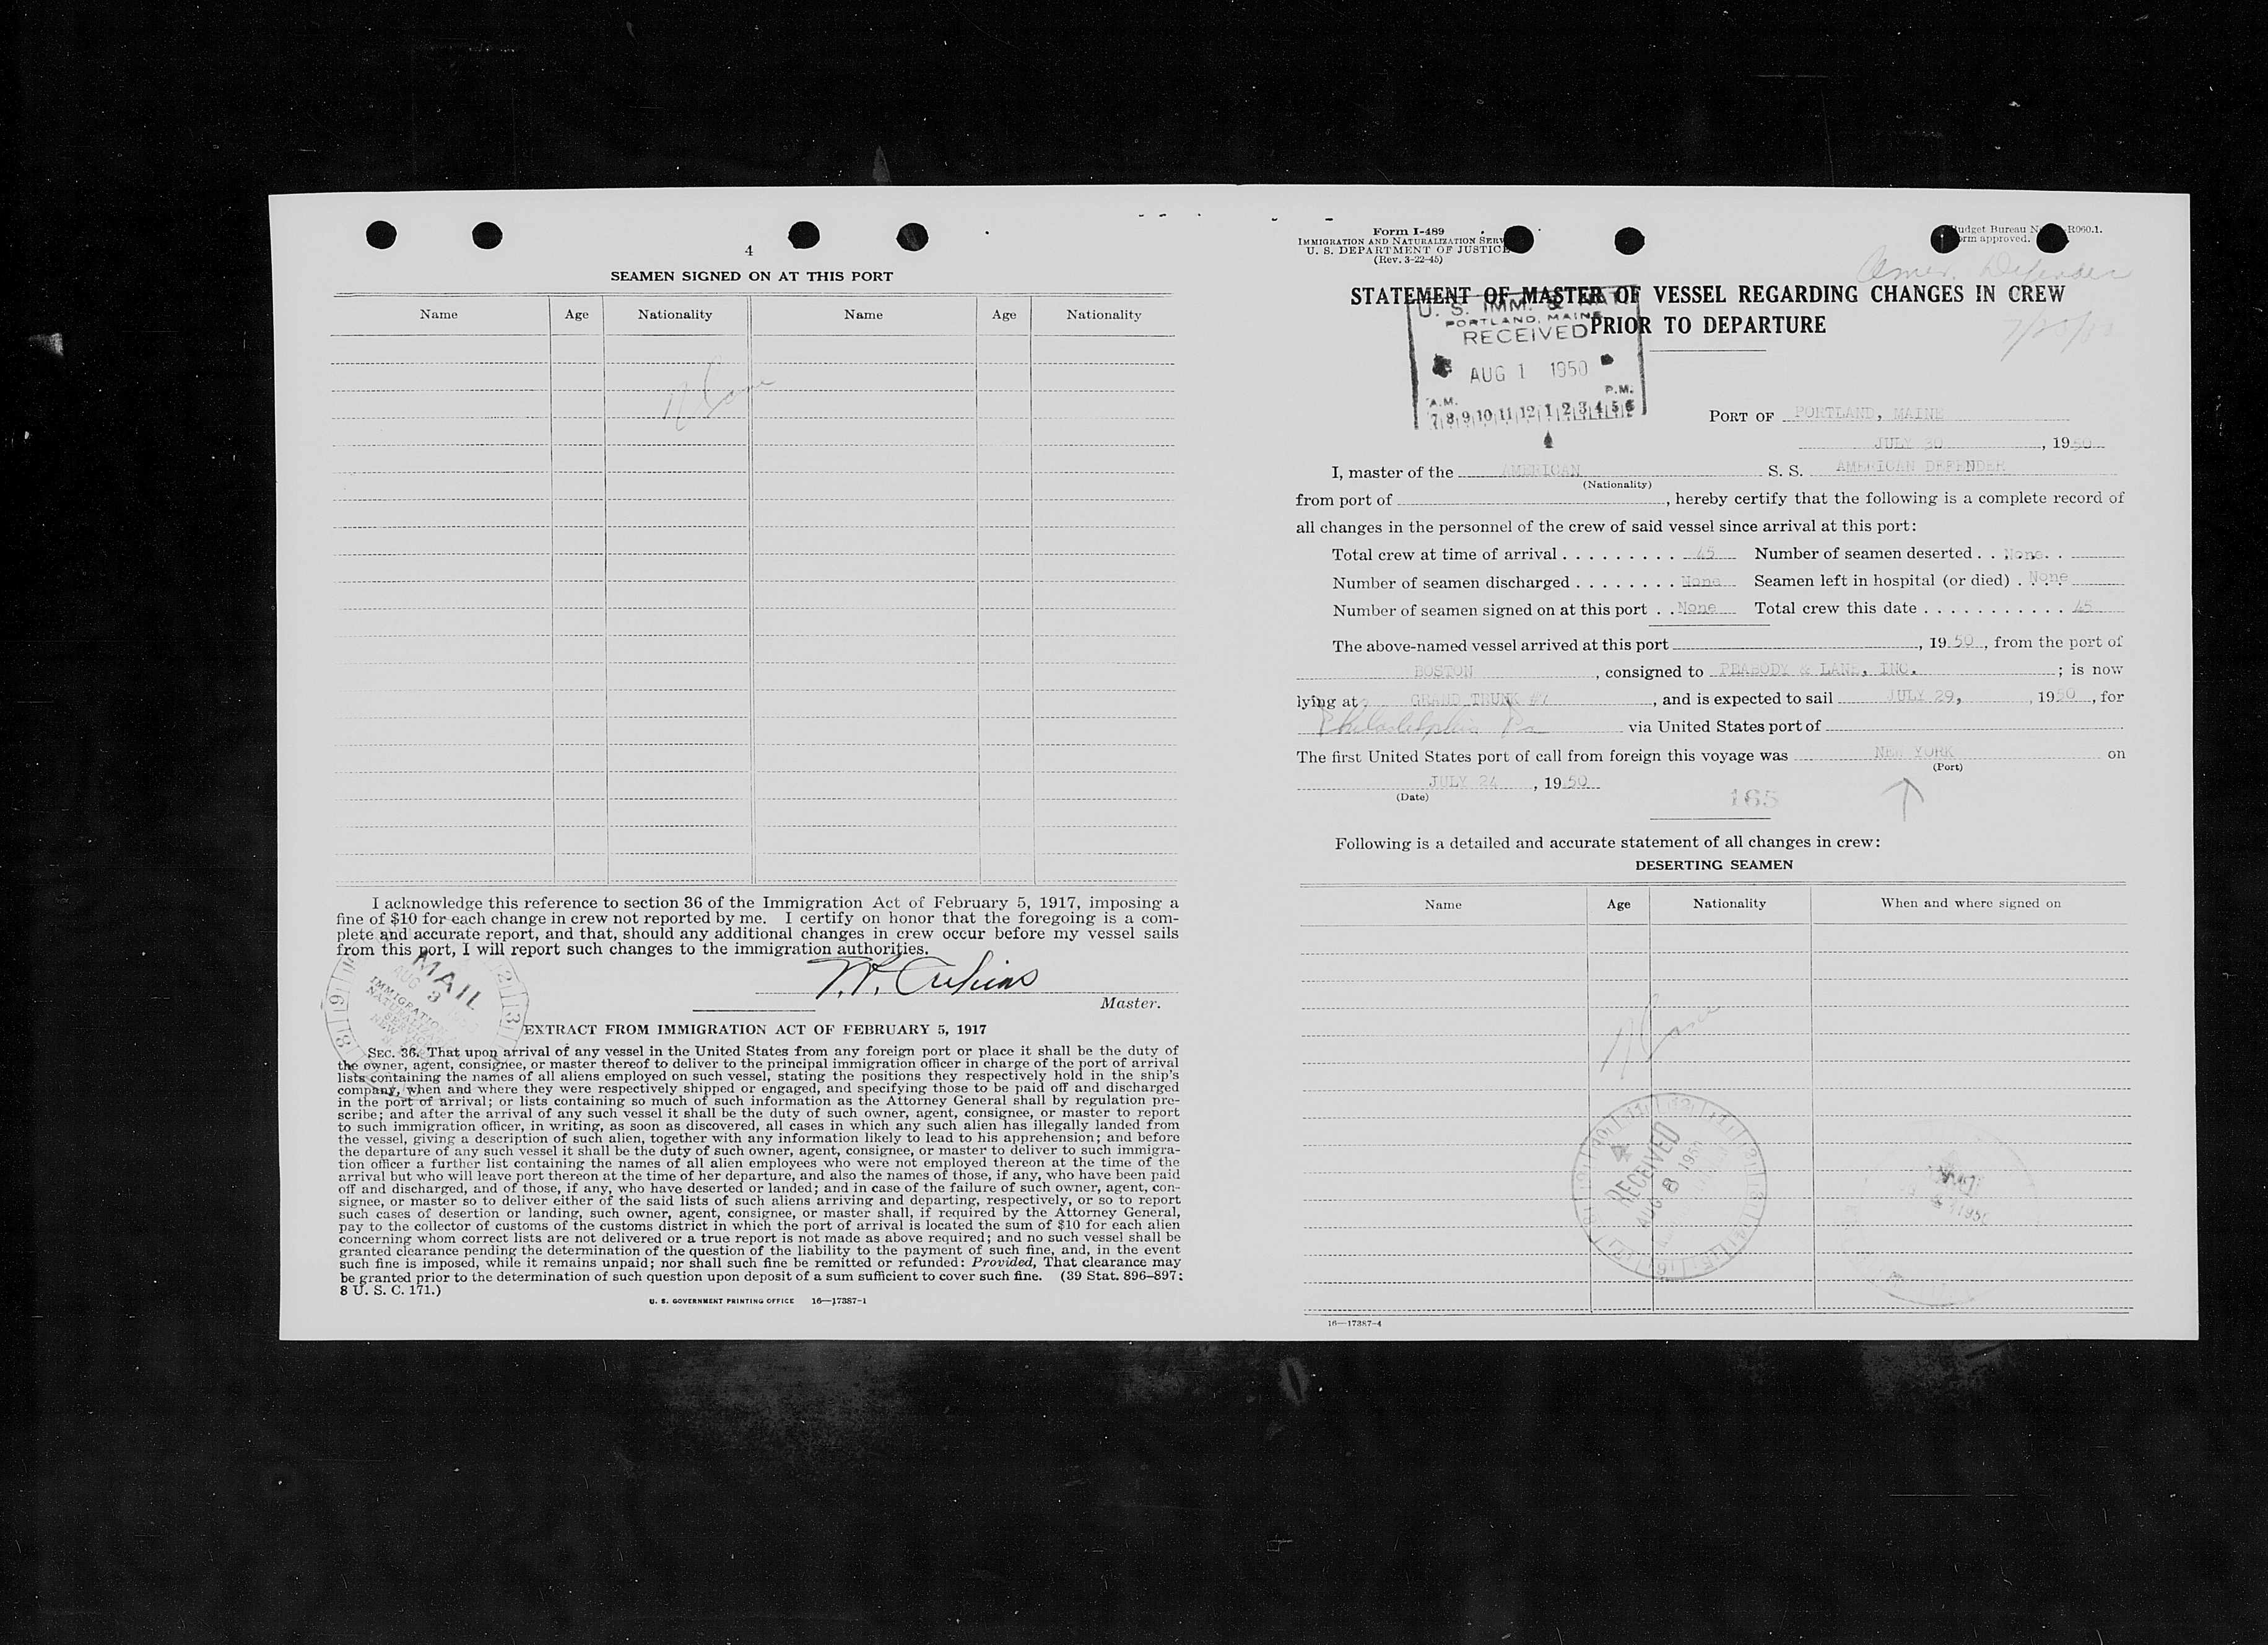 4
SEAMEN SIGNED ON AT THIS PORT
Name Age Nationality Name Age Nationality
None
I acknowledge this reference to section 36 of the Immigration Act of February 5, 1917, imposing a
fine of $10 for each change in crew not reported by me. I certify on honor that the foregoing is a com-
plete and accurate report, and that, should any additional changes in crew occur before my vessel sails
from this port, I will report such changes to the immigration authorities.
MAIL
AUG 3
IMMIGRATION
Master.
EXTRACT FROM IMMIGRATION ACT OF FEBRUARY 5, 1917
SEC. 36. That upon arrival of any vessel in the United States from any foreign port or place it shall be the duty of
the owner, agent, consignee, or master thereof to deliver to the principal immigration officer in charge of the port of arrival
lists containing the names of all aliens employed on such vessel, stating the positions they respectively hold in the ship's
company, when and where they were respectively shipped or engaged, and specifying those to be paid off and discharged
in the port of arrival; or lists containing so much of such information as the Attorney General shall by regulation pre-
scribe; and after the arrival of any such vessel it shall be the duty of such owner, agent, consignee, or master to report
to such immigration officer, in writing, as soon as discovered, all cases in which any such alien has illegally landed from
the vessel, giving a description of such alien, together with any information likely to lead to his apprehension; and before
the departure of any such vessel it shall be the duty of such owner, agent, consignee, or master to deliver to such immigra-
tion officer a further list containing the names of all alien employees who were not employed thereon at the time of the
arrival but who will leave port thereon at the time of her departure, and also the names of those, if any, who have been paid
off and discharged, and of those, if any, who have deserted or landed; and in case of the failure of such owner, agent, con-
signee, or master so to deliver either of the said lists of such aliens arriving and departing, respectively, or so to report
such cases of desertion or landing, such owner, agent, consignee, or master shall, if required by the Attorney General,
pay to the collector of customs of the customs district in which the port of arrival is located the sum of $10 for each alien
concerning whom correct lists are not delivered or a true report is not made as above required; and no such vessel shall be
granted clearance pending the determination of the question of the liability to the payment of such fine, and, in the event
such fine is imposed, while it remains unpaid; nor shall such fine be remitted or refunded: Provided, That clearance may
be granted prior to the determination of such question upon deposit of a sum sufficient to cover such fine. (39 Stat. 896–897;
8 U. S. C. 171.)
U. S. GOVERNMENT PRINTING OFFICE 16—17387-1
Form I-489
IMMIGRATION AND NATURALIZATION SERV
U. S. DEPARTMENT OF JUSTICE
(Rev. 3-22-45)
udget Bureau N R060.1.
orm approved.
Amer. Defender
STATEMENT OF MASTER OF VESSEL REGARDING CHANGES IN CREW
PRIOR TO DEPARTURE
U. S. IMM. & NAT
PORTLAND, MAINE
RECEIVED
AUG 1 1950
A.M. P.M.
7 8 9 10 11 12 1 2 3 4 5 6
PORT OF PORTLAND, MAINE
JULY 30, 1950
I, master of the AMERICAN S. S. AMERICAN DEFENDER
(Nationality)
from port of , hereby certify that the following is a complete record of
all changes in the personnel of the crew of said vessel since arrival at this port:
Total crew at time of arrival . . . . . . . . . 45 Number of seamen deserted . . None. .
Number of seamen discharged . . . . . . . None Seamen left in hospital (or died) . None
Number of seamen signed on at this port . . None Total crew this date . . . . . . . . . . . 45
The above-named vessel arrived at this port , 1950, from the port of
BOSTON, consigned to PEABODY & LANE, INC. ; is now
lying at GRAND TRUNK #1, and is expected to sail JULY 29, , 1950, for
Philadelphia Pa via United States port of
The first United States port of call from foreign this voyage was NEW YORK on
(Port)
JULY 24, 1950
(Date)
165
Following is a detailed and accurate statement of all changes in crew:
DESERTING SEAMEN
Name Age Nationality When and where signed on
None
RECEIVED
AUG 8 195
16—17387-4